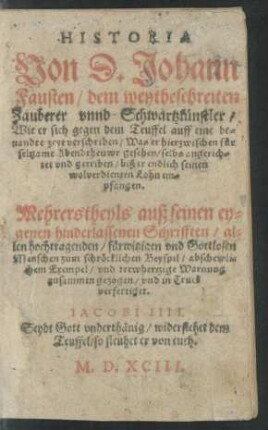 HISTORIA
Von D. Johann
Fausten / dem weytbeschreiten
Zauberer vnnd Schwartzkünstler /
Wie er sich gegen dem Teuffel auff eine be-
nandte zeyt verschriben / Was er hierzwischen für
seltzame Abendtheuwr gesehen / selbs angerich-
tet vnd getriben / biß er endlich seinen
wolverdienten Lohn em-
pfangen.
Mehrerstheyls auß seinen ey-
genen hinderlassenen Schrifften / al-
len hochtragenden / fürwitzigen vnd Gottlosen
Menschen zum schröcklichen Beyspil / abschewli-
chem Exempel / vnd trewhertziger Warnung
zusammen gezogen / vnd in Truck
verfertiget.
IACOBI IIII.
Seydt Gott vnderthänig / widerstehet dem
Teuffel / so fleuhet er von euch.
M. D. XCIII.